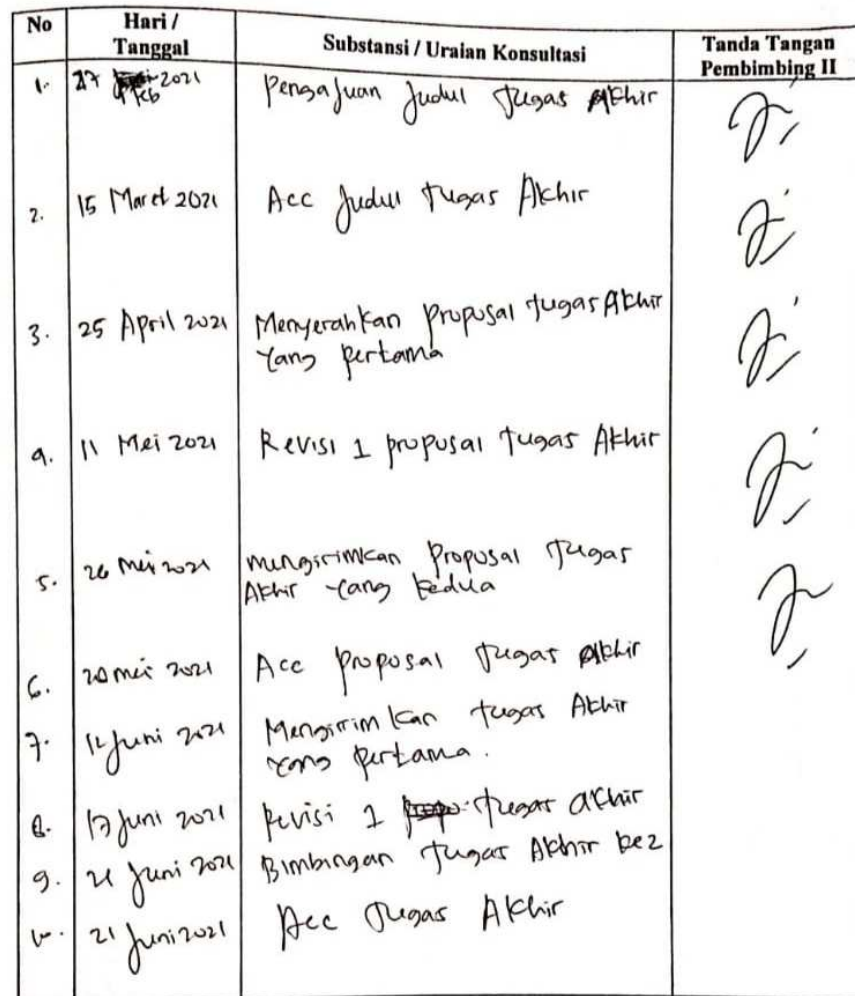 No Hari / Tanggal Substansi / Uraian Konsultasi Tanda Tangan Pembimbing II
1. 27 Feb 2021 Pengajuan Judul Tugas Akhir
2. 15 Maret 2021 Acc Judul Tugas Akhir
3. 25 April 2021 Menyerahkan proposal tugas Akhir
yang pertama
4. 11 Mei 2021 Revisi 1 proposal tugas Akhir
5. 26 Mei 2021 Mengirimkan Proposal Tugas
Akhir yang kedua
6. mei 2021 Acc proposal tugas Akhir
7. 12 Juni 2021 Mengirimkan tugas Akhir
yang pertama.
8. Juni 2021 Revisi 1 tugas akhir
9. 21 Juni 2021 Bimbingan tugas Akhir ke2
10. 21 Juni 2021 Acc Tugas Akhir